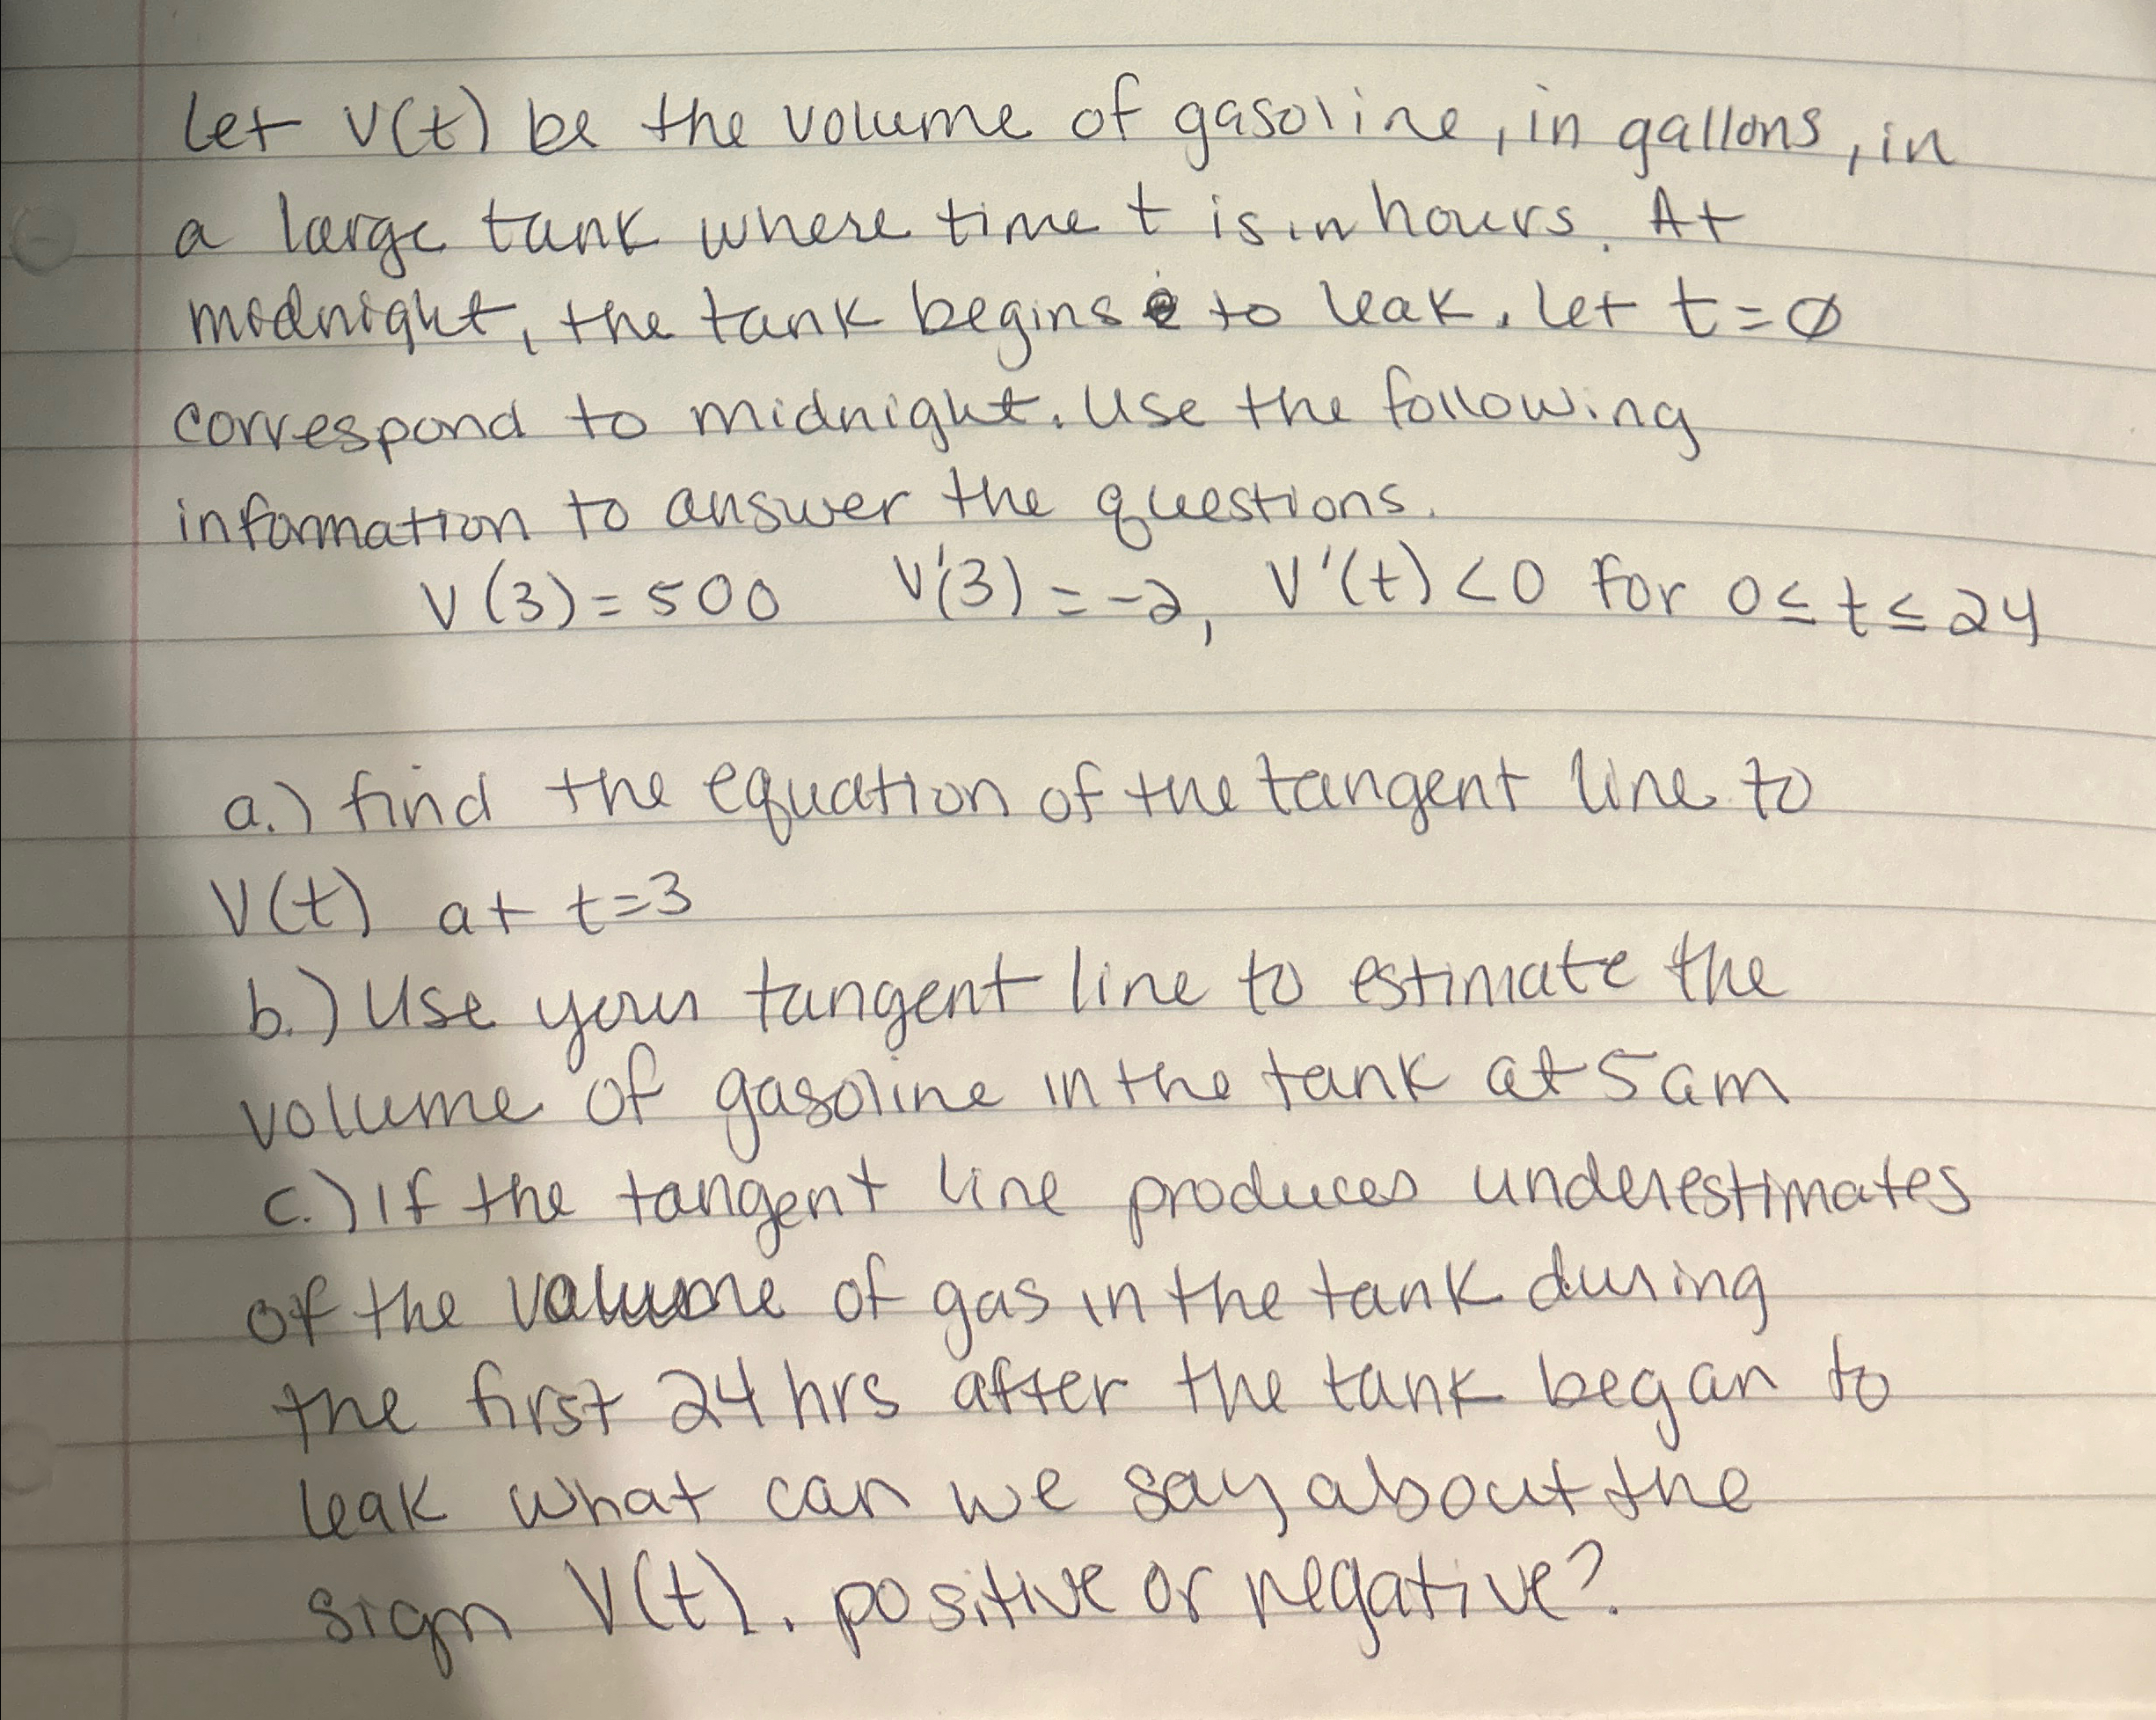 Let V(t) be the volume of gasoline, in gallons, in
a large tank where time t is in hours. At
midnight, the tank begins to leak. Let t=∅
correspond to midnight. Use the following
information to answer the questions.
V(3)=500 V'(3)=-2, V'(t)<0 for 0≤t≤24
a.) find the equation of the tangent line to
V(t) at t=3
b.) Use your tangent line to estimate the
volume of gasoline in the tank at 5am
c.) If the tangent line produces underestimates
of the volume of gas in the tank during
the first 24 hrs after the tank began to
leak what can we say about the
sign V(t). positive or negative?